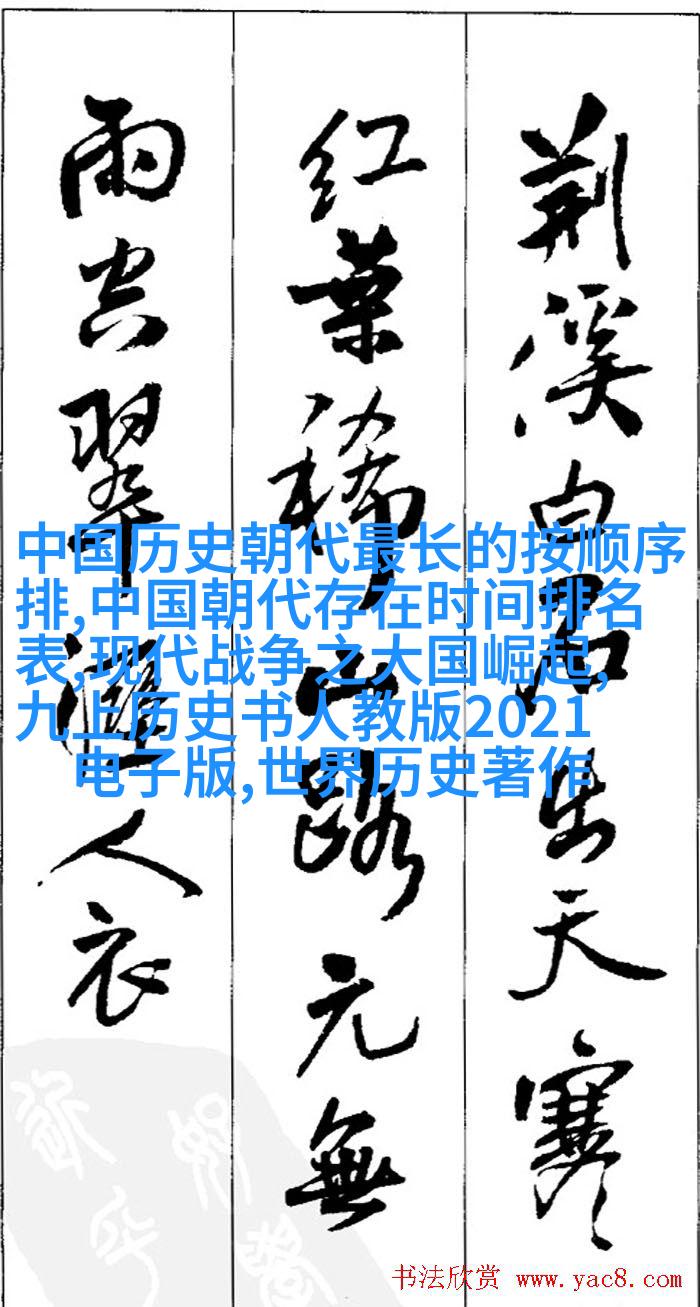 荆溪白石出天寒
红葉稀山路元無
雨空翠濕人衣
中国历史朝代最长的按顺序
排,中国朝代存在时间排名
表,现代战争之大国崛起,
九上历史书人教版2021
电子版,世界历史著作
书法欣赏 www.yac8.com